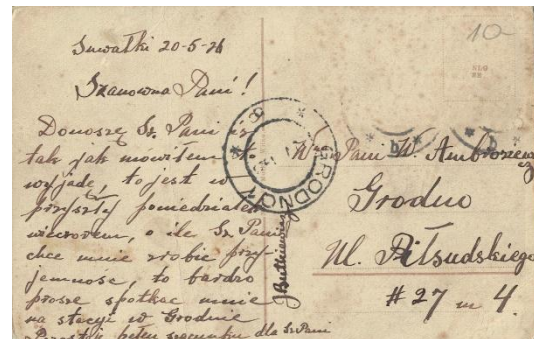 Suwałki 20-5-26
Szanowna Pani!
Donoszę Sz. Pani iż
tak jak mówiłem
wyjadę, to jest w
przyszły poniedziałek
wieczorem, o ile Sz. Pani
chce mnie zrobić przy
jemność, to bardzo
proszę spotkać mnie
na stacji w Grodnie
Pozostaję pełen szacunku dla Sz. Pani
GRODNO 1
Pani W. Ambrożewicz
Grodno
Ul. Piłsudskiego
# 27 m 4.
10-